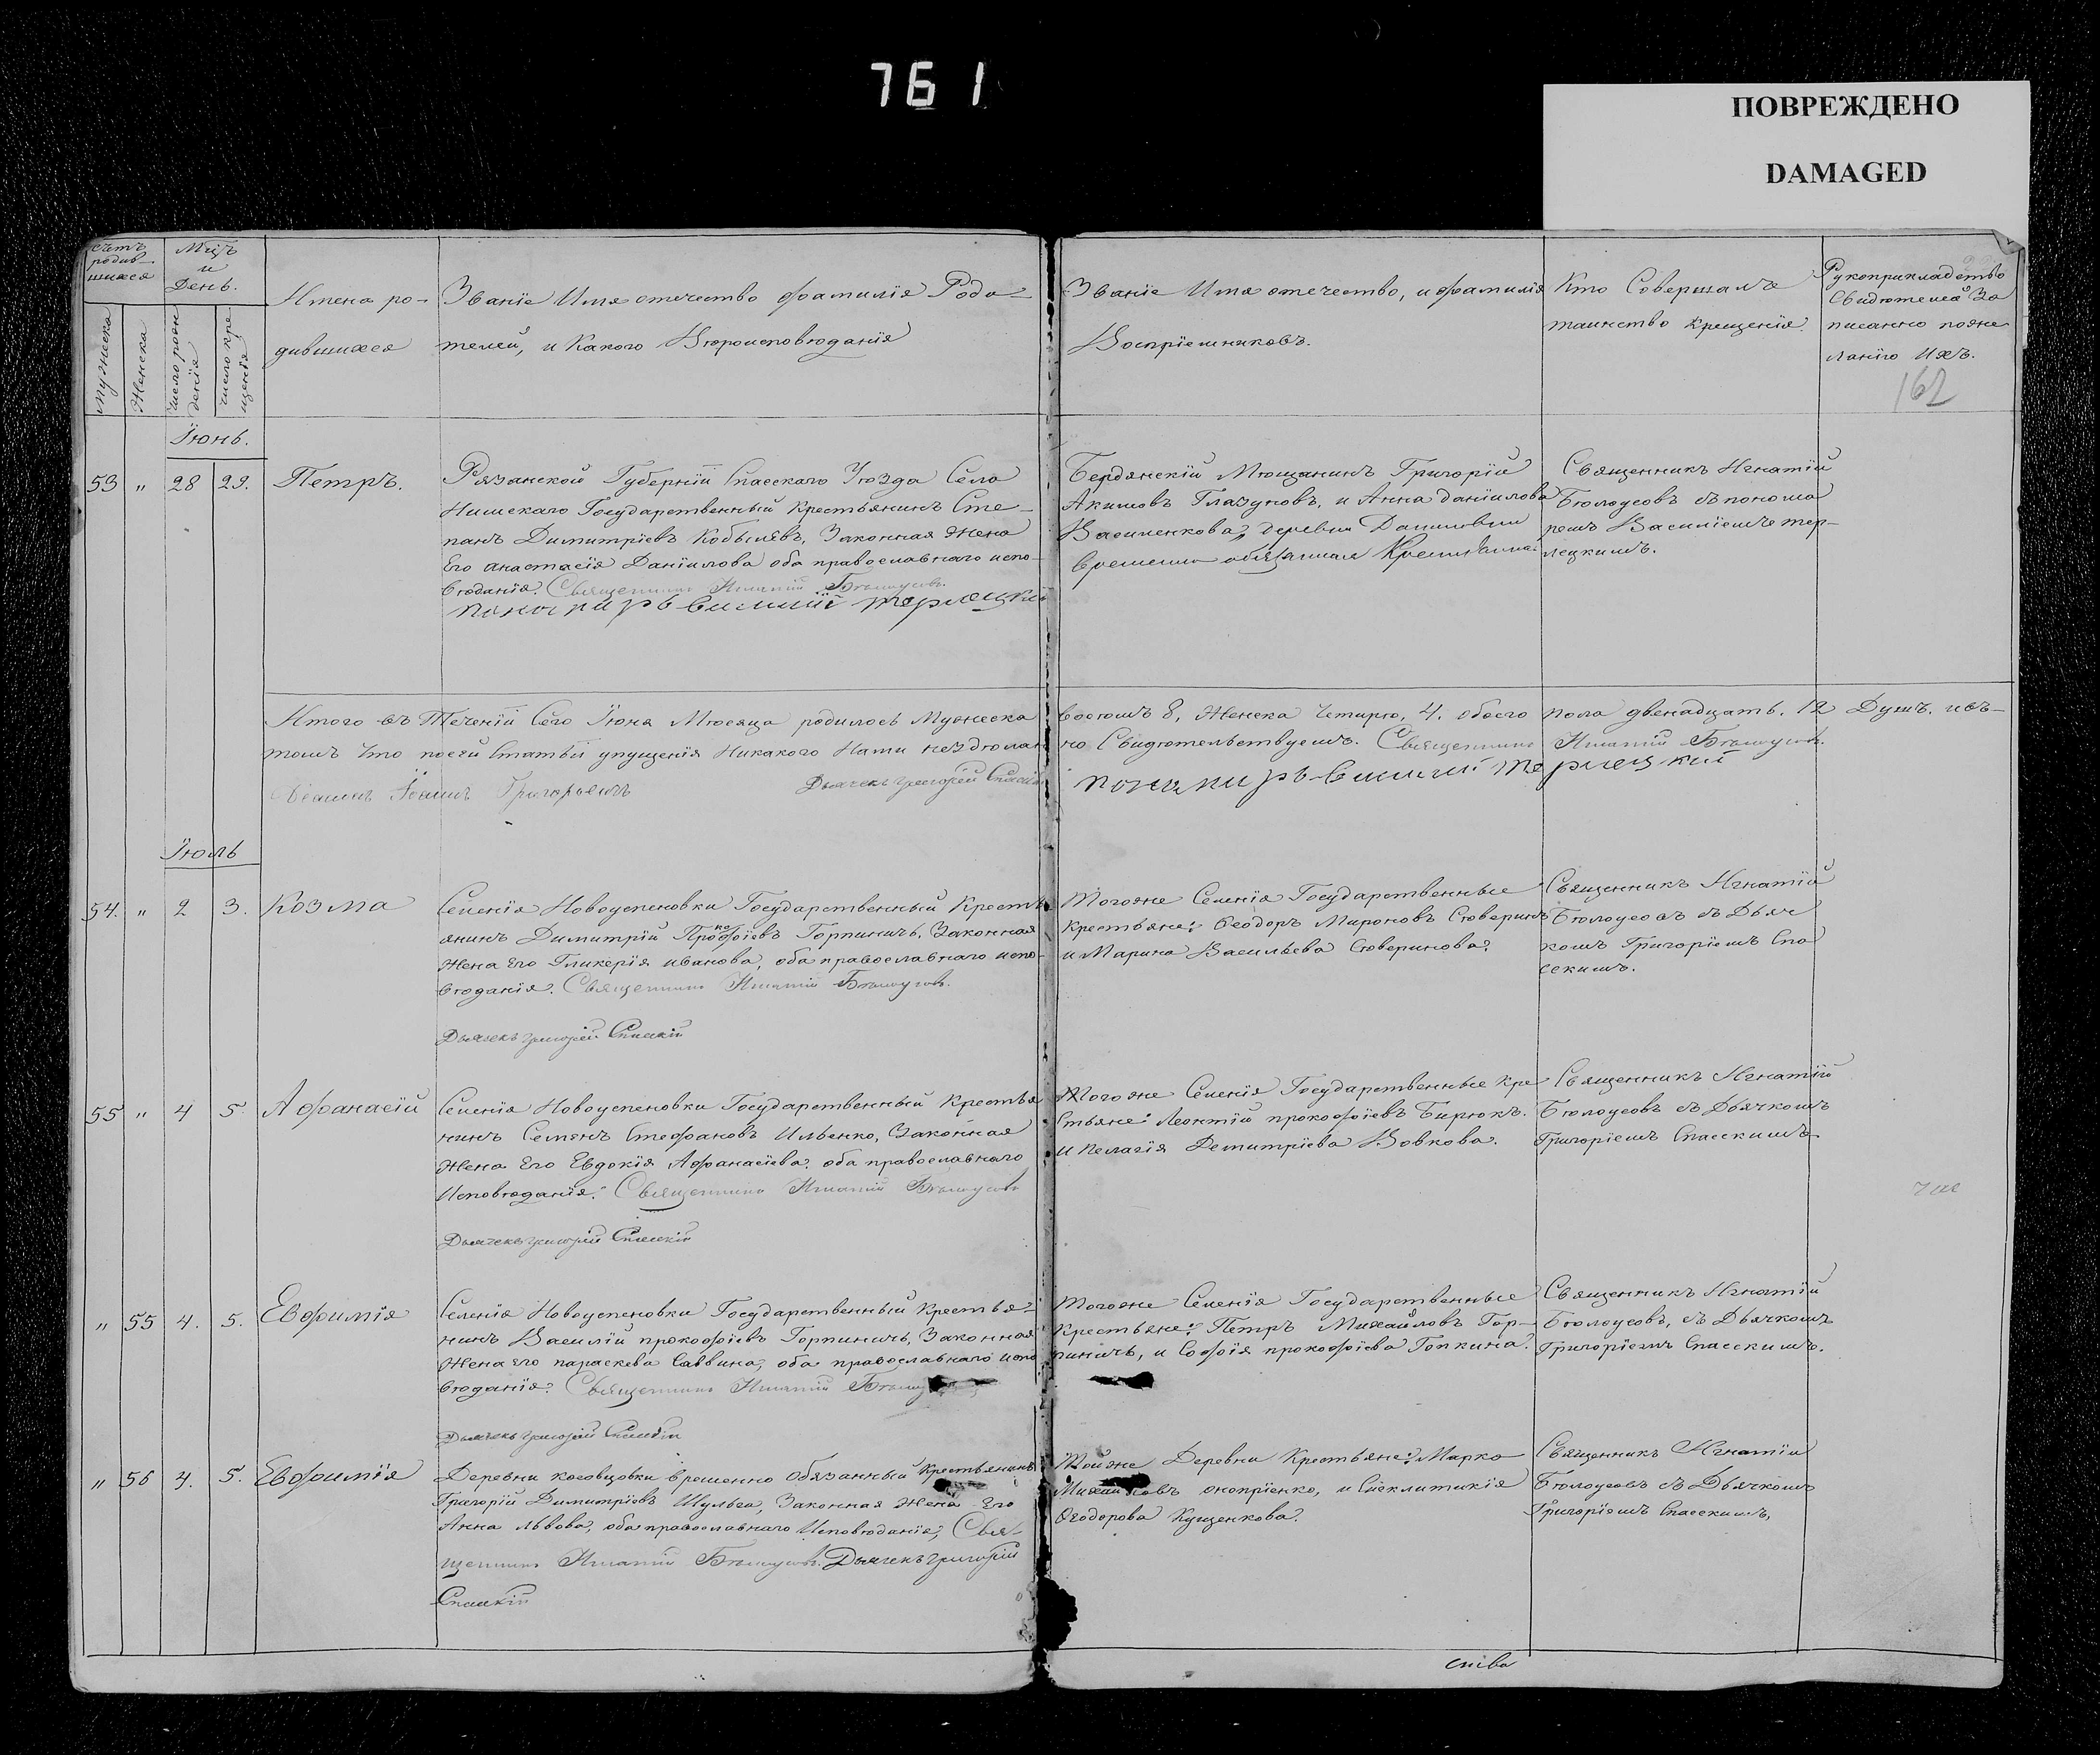 761
ПОВРЕЖДЕНО
DAMAGED
счетъ
родив-
шихся
Мцъ
и
День.
мужеска
Женска
число рож
денія
число кре
щенія
Имена ро-
дившихся
Званіе Имя отечество фамилія Роди-
телей, и Какого Вѣроисповѣданія
Званіе Имя отечество, и фамилія
Воспріемниковъ.
Кто Совершалъ
таинство крещенія.
Рукоприкладство
Свидѣтелей За
писанно поже
ланію Ихъ.
162
Іюнь.
53 " 28 29. Петръ.
Рязанской Губерніи Спасскаго Уѣзда Села
Государственный Крестьянинъ Сте-
панъ Димитріевъ Кобылевъ, Законная Жена
Его анастасія Даніилова оба православнаго испо-
вѣданія. Священникъ Игнатій Бѣлоусовъ.
понамарь василій терлецкій
Бердянскій Мѣщанинъ Григорій
Акимовъ Глазуновъ, и Анна даніилова
Василенкова, деревни Даниловки
временно обязанная Крестьянка
Священникъ Игнатій
Бѣлоусовъ съ понома
ремъ Василіемъ тер-
лецкимъ.
Итого въ Теченіи Сего Іюня Мѣсяца родилось Мужеска восѣмъ 8, Женска Четырѣ, 4. обоего пола двенадцать. 12 Душъ. ивъ-
томъ что посей Статьи упущенія Никакого Нами нездѣлан но Свидѣтельствуемъ. Священникъ Игнатій Бѣлоусовъ.
Іоаннъ Григорьевъ Дьячекъ григорій Спаскій понамарь василий терлецкий
Іюль
54. " 2 3. Козма
Селенія Новоуспеновки Государственный Кресть
янинъ Димитрій Прокофіевъ Горпиничъ, Законная
Жена Его Гликерія иванова, оба православнаго испо-
вѣданія. Священникъ Игнатій Бѣлоусовъ.
Дьячекъ григорій Спаскій
Тогоже Селенія Государственные
Крестьяне: Ѳеодоръ Мироновъ Сѣверинъ
и Марина Васильева Сѣверинова.
Священникъ Игнатій
Бѣлоусовъ съ Дьяч
комъ Григоріемъ Спа
сскимъ.
55 " 4 5. Афанасій
Селенія Новоуспеновки Государственный Крестья
нинъ Семенъ Стефановъ Ильенко, Законная
Жена Его Евдокія Афанасіева, оба православнаго
Исповѣданія. Священникъ Игнатій Бѣлоусовъ
Дьячекъ григорій Спаскій
Тогоже Селенія Государственные Кре
стьяне: Леонтій прокофіевъ Бирюкъ.
и пелагія Демитріева Вовкова.
Священникъ Игнатій
Бѣлоусовъ съ Дьячкомъ
Григоріемъ Спасскимъ
" 55 4. 5. Евфимія
Селенія Новоуспеновки Государственный Крестья-
нинъ Василій прокофіевъ Горпиничъ, Законная
Жена Его параскева Саввина, оба православнаго испо
вѣданія. Священникъ Игнатій
Дьячекъ григорій Спаскій
Тогоже Селенія Государственные
Крестьяне: Петръ Михайловъ Гор-
пиничъ, и Софія прокофіева Гопкина.
Священникъ Игнатій
Бѣлоусовъ, съ Дьячкомъ
Григоріемъ Спасскимъ.
" 56 4. 5. Евфимія
Деревни косовцовки временно Обязанный Крестьянинъ
Григорій Димитріевъ Шульга, Законная Жена Его
Анна Львова, оба православнаго Исповѣданія, Свя-
щенникъ Игнатій Бѣлоусовъ. Дьячекъ григорій
Спаскій
Тойже Деревни Крестьяне: Марко
Михайловъ оноприенко, и Сиклитикія
Ѳеодорова Кущенкова.
Священникъ Игнатій
Бѣлоусовъ съ Дьячкомъ
Григоріемъ Спасскимъ,